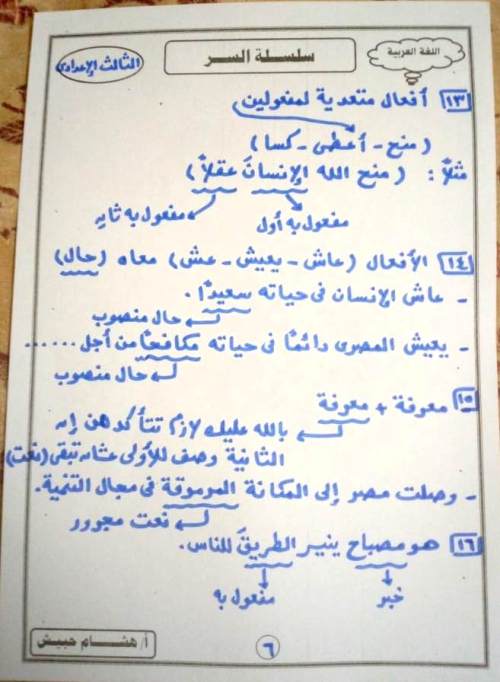 اللغة العربية
سلسلة السر
الثالث الإعدادى
١٣ أفعال متعدية لمفعولين
(منح - أعطى - كسا)
مثلاً : (منح الله الإنسانَ عقلاً)
مفعول به أول
مفعول به ثانٍ
١٤ الأفعال (عاش - يعيش - عش) معاه (حال)
- عاش الإنسان فى حياته سعيدًا.
حال منصوب
- يعيش المصرى دائمًا فى حياته مكافحًا من أجل ......
حال منصوب
١٥ معرفة + معرفة
بالله عليك لازم تتأكد من إن
الثانية وصف للأولى عشان تبقى (نعت)
- وصلت مصر إلى المكانة المرموقة فى مجال التنمية.
نعت مجرور
١٦ هو مصباح ينير الطريقَ للناس.
خبر
مفعول به
أ/ هشام حبيش
٦